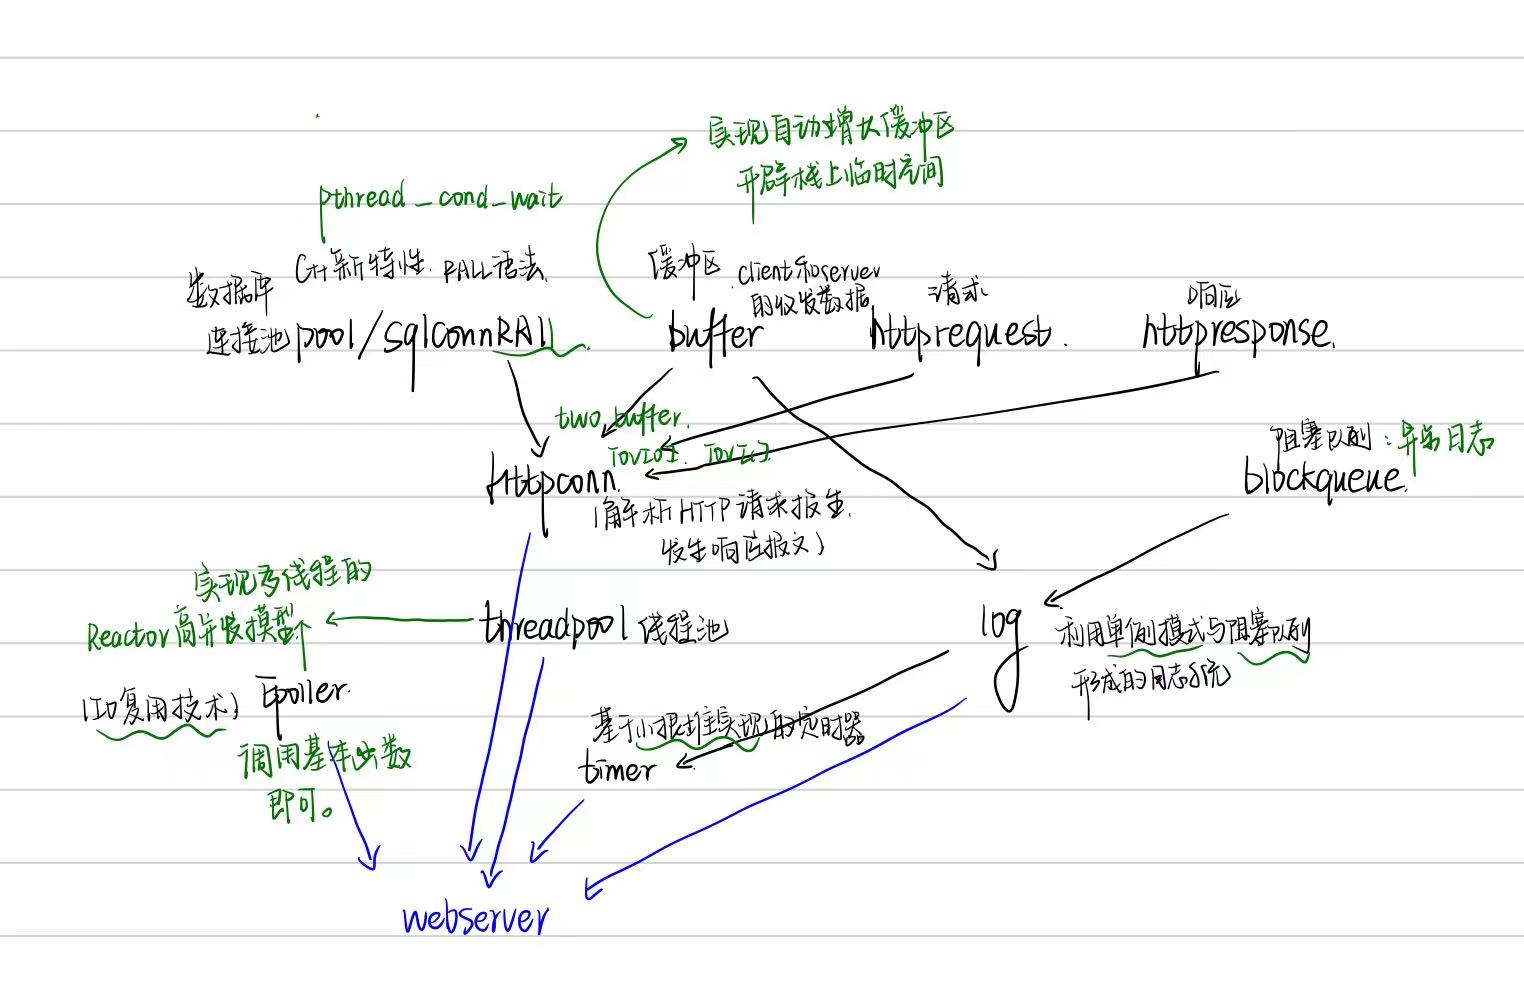 实现自动增长缓冲区
开辟栈上临时空间
pthread_cond_wait
C++新特性. RALL语法.
数据库
连接池
pool/sqlconnRAII
缓冲区
client和server
的收发数据
buffer
请求
httprequest.
响应
httpresponse.
two buffer.
iov[0]. iov[1]
httpconn.
(解析HTTP请求报生.
发生响应报文)
阻塞队列:异步日志
blockqueue.
实现多线程的
Reactor高并发模型
threadpool 线程池
log
利用单例模式与阻塞队列
形成的日志系统
(IO复用技术)
Epoller.
调用基本函数
即可。
基于小根堆实现的定时器
timer
webserver